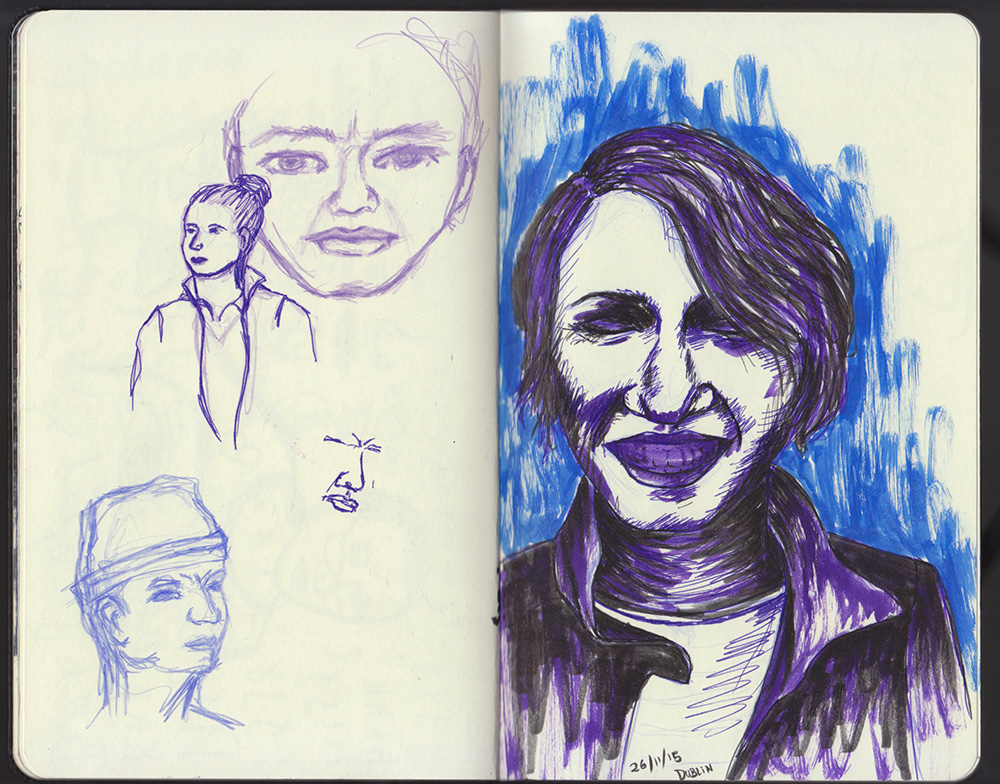 26/11/15
DUBLIN